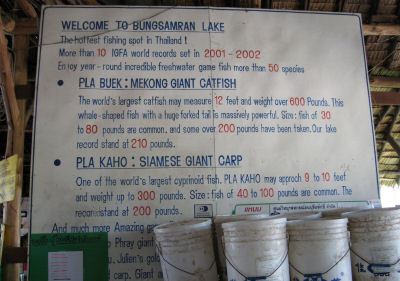 WELCOME TO BUNGSAMRAN LAKE
The hottest fishing spot in Thailand !
More than 10 IGFA world records set in 2001 - 2002
Enjoy year - round incredible freshwater game fish more than 50 species
• PLA BUEK : MEKONG GIANT CATFISH
The world's largest catfish may measure 12 feet and weight over 600 Pounds. This
whale - shaped fish with a huge forked tail is massively powerful. Size : fish of 30
to 80 pounds are common. and some over 200 pounds have been taken. Our lake
record stand at 210 pounds.
• PLA KAHO : SIAMESE GIANT CARP
One of the world's largest cyprinoid fish. PLA KAHO may approch 9 to 10 feet
and weight up to 300 pounds. Size : fish of 40 to 100 pounds are common. The
record stand at 200 pounds.
And much more Amazing
Phray giant
Julien's gol
carp. Giant